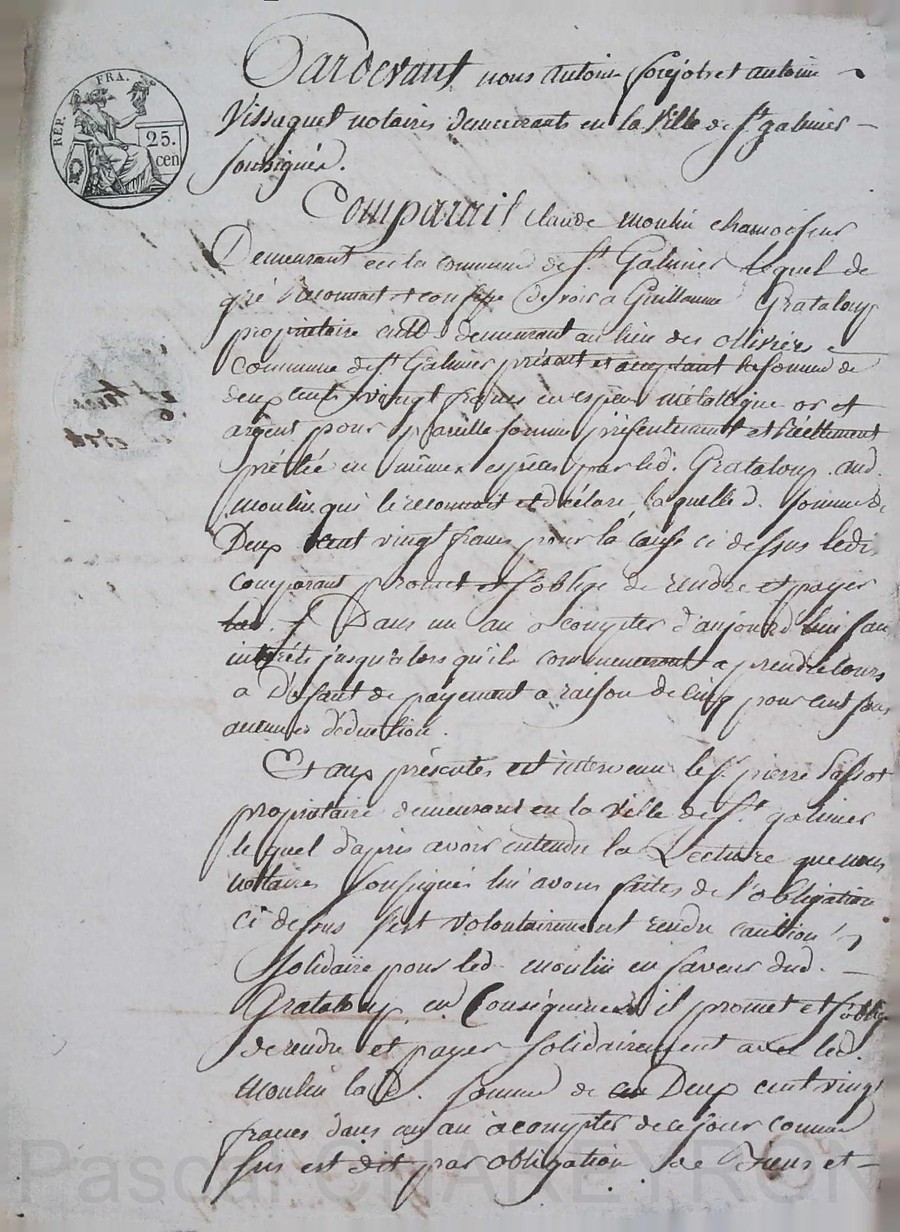 REP. FRA.
25.
cen
Pardevant nous antoine et antoine
Vissaguet notaires demeurants en la Ville de St galmier
soussignés.
Comparait Claude moulin chamoiseur
Demeurant en la commune de St. Galmier lequel de
gré reconnait et confesse devoir a Guillaume Grataloup
propriétaire cultr demeurant au lieu des
commune de St Galmier présent et acceptant la somme de
deux cents vingt francs en espèces métallique or et
argent pour pareille somme présentement et réellement
prêtée en mêmes espèces par led. Grataloup aud.
moulin qui le reconnait et déclare, laquelle d. somme de
Deux cent vingt francs pour la cause ci dessus ledi
comparant promet et s'oblige de rendre et payer
Dans un an a compter d'aujourd'hui san
intérêts jusqu'alors qu'ils commenceront a prendre cours
a Défaut de payement a raison de cinq pour cent sans
aucunes déduction.
Et aux présentes est intervenu le Sr. pierre
propriétaire demeurant en la ville de St galmier
lequel d'après avoir entendu la Lecture que nous
nottaires soussignés lui avons faites de l'obligation
ci dessus s'est volontairement rendu caution
solidaire pour led. moulin en faveur dud.
Grataloup, en Conséquences il promet et s'oblige
de rendre et payer solidairement avec led.
Moulin lad. somme de Deux cent vingt
francs dans un an à compter de ce jour comme
sus est dit par obligation de Biens et
Pascal CHAREYRON